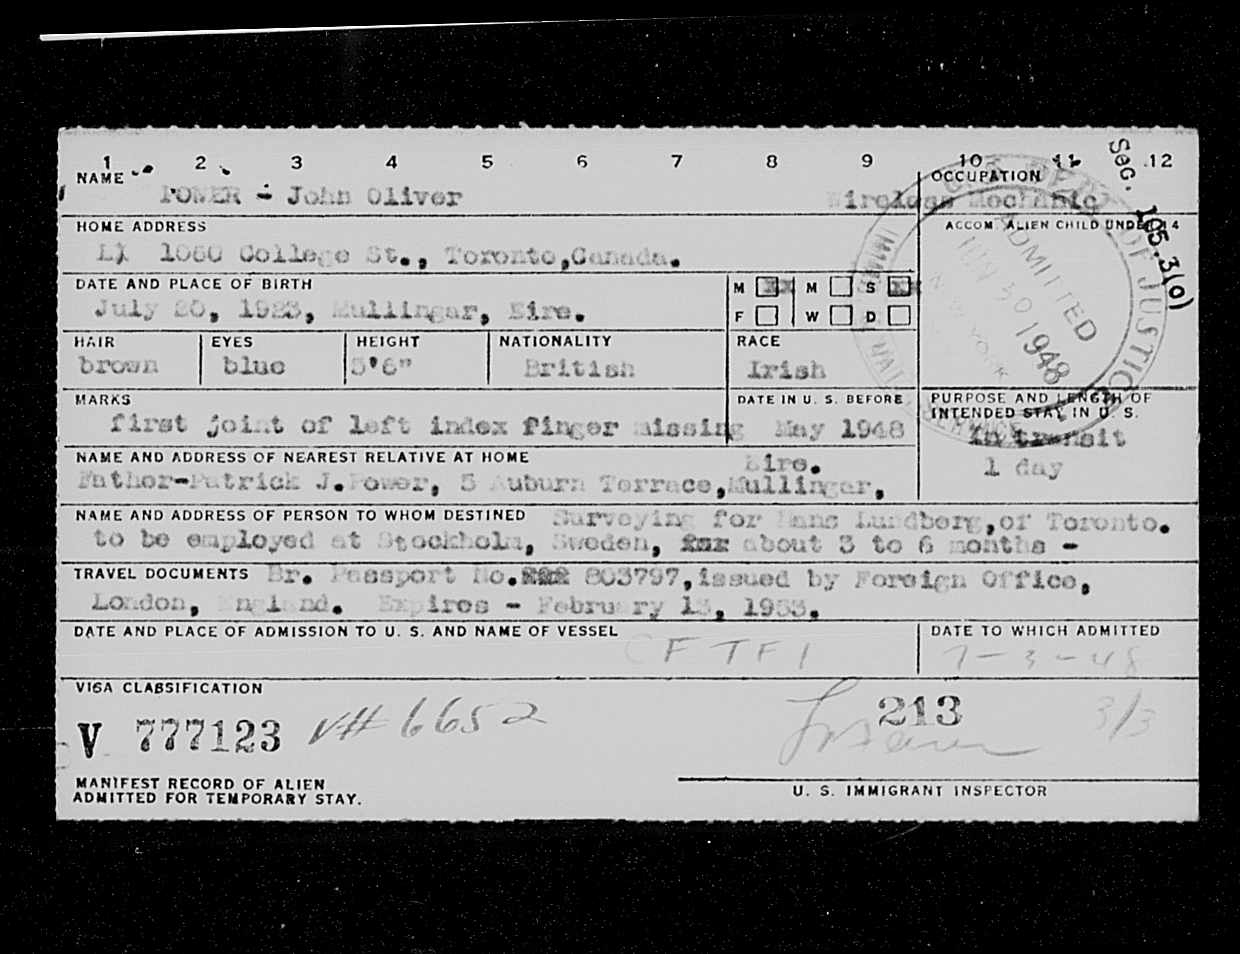 1 2 3 4 5 6 7 8 9 10 11 12
NAME OCCUPATION
POWER - John Oliver Wireless Mechanic
Sec. 165.3(0)
HOME ADDRESS ACCOM. ALIEN CHILD UNDER 14
1060 College St., Toronto,Canada.
DATE AND PLACE OF BIRTH M xx M S xx
July 20, 1923, Mullingar, Eire. F W D
HAIR EYES HEIGHT NATIONALITY RACE
brown blue 5'6" British Irish
U.S. DEPT. OF JUSTICE
ADMITTED
JUN 30 1948
NEW YORK
MARKS DATE IN U. S. BEFORE PURPOSE AND LENGTH OF
INTENDED STAY IN U. S.
first joint of left index finger missing May 1948 in transit
NAME AND ADDRESS OF NEAREST RELATIVE AT HOME Eire. 1 day
Father-Patrick J.Power, 5 Auburn Terrace,Mullingar,
NAME AND ADDRESS OF PERSON TO WHOM DESTINED Surveying for Hans Lundberg,of Toronto.
to be employed at Stockholm, Sweden, about 3 to 6 months -
TRAVEL DOCUMENTS Br. Passport No. 803797,issued by Foreign Office,
London, England. Expires - February 13, 1953.
DATE AND PLACE OF ADMISSION TO U. S. AND NAME OF VESSEL DATE TO WHICH ADMITTED
CF TFI 7-3-48
VISA CLASSIFICATION
V 777123 V# 6652 213 3/3
MANIFEST RECORD OF ALIEN
ADMITTED FOR TEMPORARY STAY.
U. S. IMMIGRANT INSPECTOR